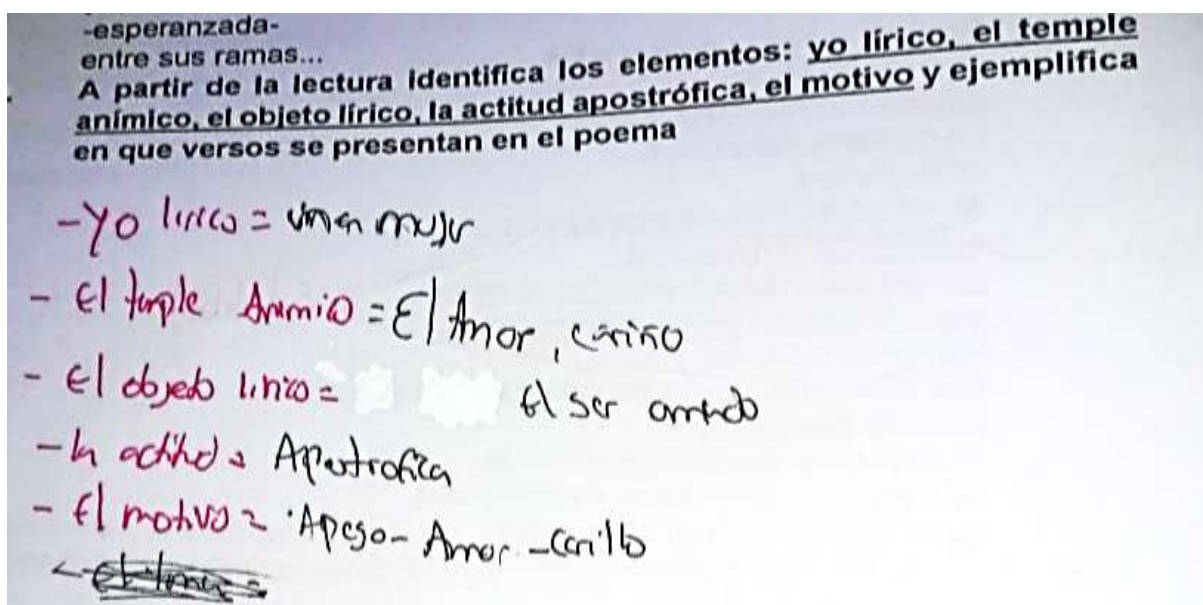 -esperanzada-
entre sus ramas...
A partir de la lectura identifica los elementos: yo lírico, el temple
anímico, el objeto lírico, la actitud apostrófica, el motivo y ejemplifica
en que versos se presentan en el poema
-Yo lirico = una mujer
- El temple Animico = El Amor, cariño
- El objeto lirico = El ser amado
- la actitud = Apostrofica
- El motivo = Apego - Amor -